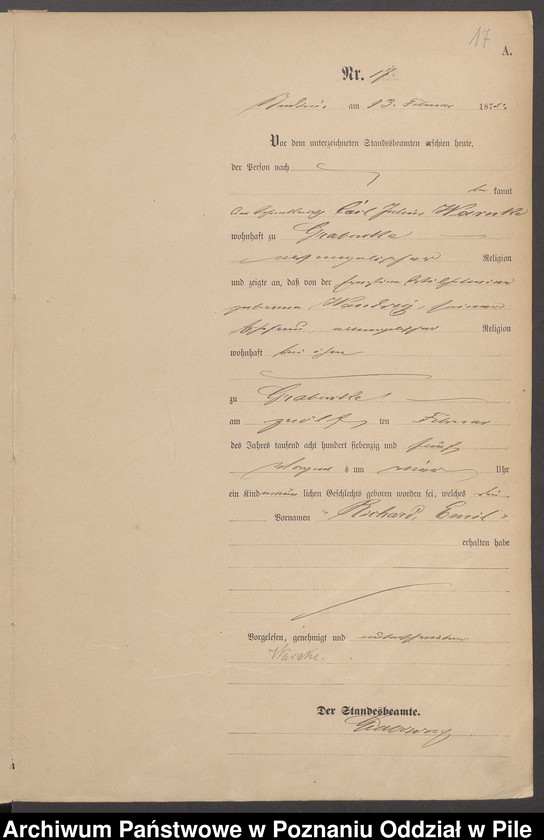 17
A.
Nr. 17.
am 13. Februar 1875.
Vor dem unterzeichneten Standesbeamten erschien heute,
der Person nach
be kannt
Carl Julius Warnke
wohnhaft zu Grabowke
evangelischer Religion
und zeigte an, daß von der
geborenen seiner
Ehefrau, evangelischer Religion
wohnhaft bei ihm
zu Grabowke
am zwölften Februar
des Jahres tausend acht hundert siebenzig und fünf
Morgens um Uhr
ein Kind männlichen Geschlechts geboren worden sei, welches die
Vornamen Richard, Emil
erhalten habe
Vorgelesen, genehmigt und unterschrieben.
Warnke.
Der Standesbeamte.
Archiwum Państwowe w Poznaniu Oddział w Pile